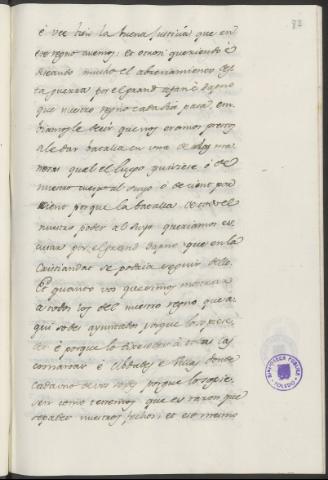 82
é vee bien la buena Justicia que en
este regno avemos; Et otrosi queriendo é
deseando mucho el abreviamiento des
ta guerra por el grand afan é dapno
que nuestro regno cada dia pasa, em
biamosle decir que nos eramos prestos
a le dar batalla en una de dos ma
neras qual el luego quisiere ó de
nuestro cuerpo al suyo ó de ciento por
ciento porque la batalla de todo el
nuestro poder al suyo queriamos es
cusar por el grand dapno que en la
Cristiandat se podria seguir dello.
Et quanto nos quesimos mostrar
a todos los del nuestro regno que a
qui sodes ayuntados porque lo sopiese
des é porque lo
comarcas é Cibdades é Villas donde
cada uno de vos sodes porque lo sopie
sen como tenemos que es razon que
sepades nuestros fechos; et eso mesmo
BIBLIOTECA PUBLICA
TOLEDO